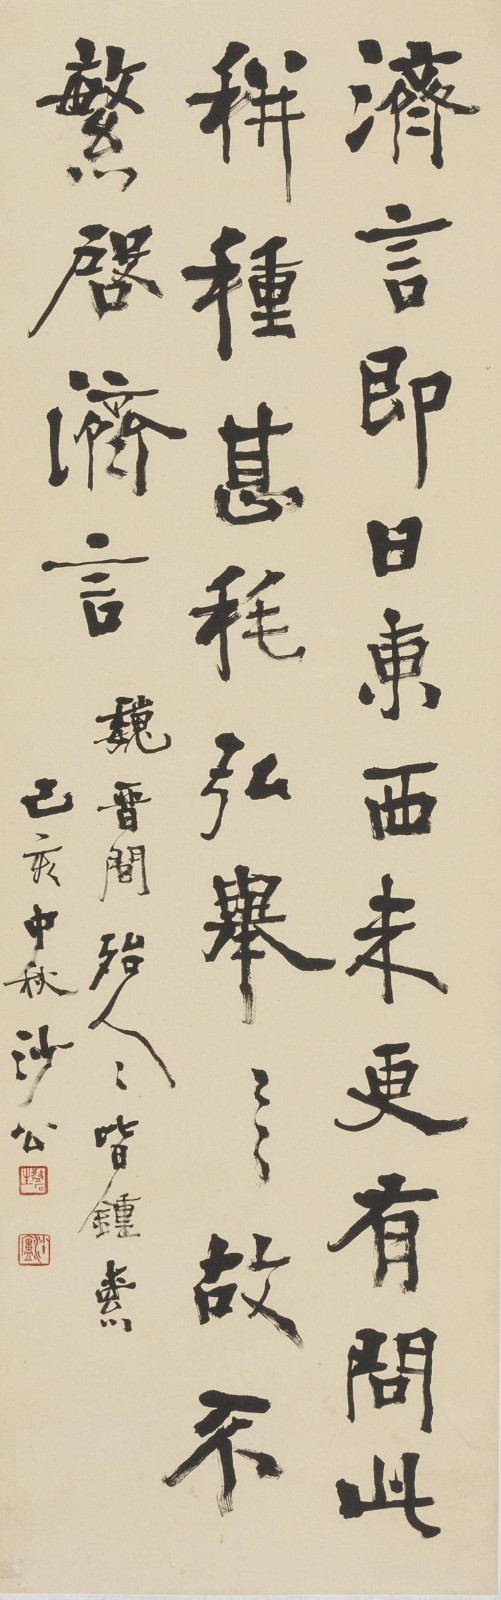 濟言即日東西未更有問此
種甚耗弘舉〻〻故不
繁啓濟言
魏晉間殆人〻皆鍾索
己亥中秋沙公